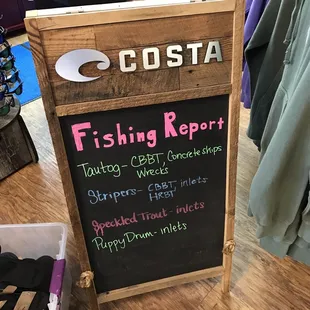 COSTA
Fishing Report
Tautog - CBBT, Concrete ships
Wrecks
Stripers - CBBT, inlets
HRBT
Speckled Trout - inlets
Puppy Drum - inlets